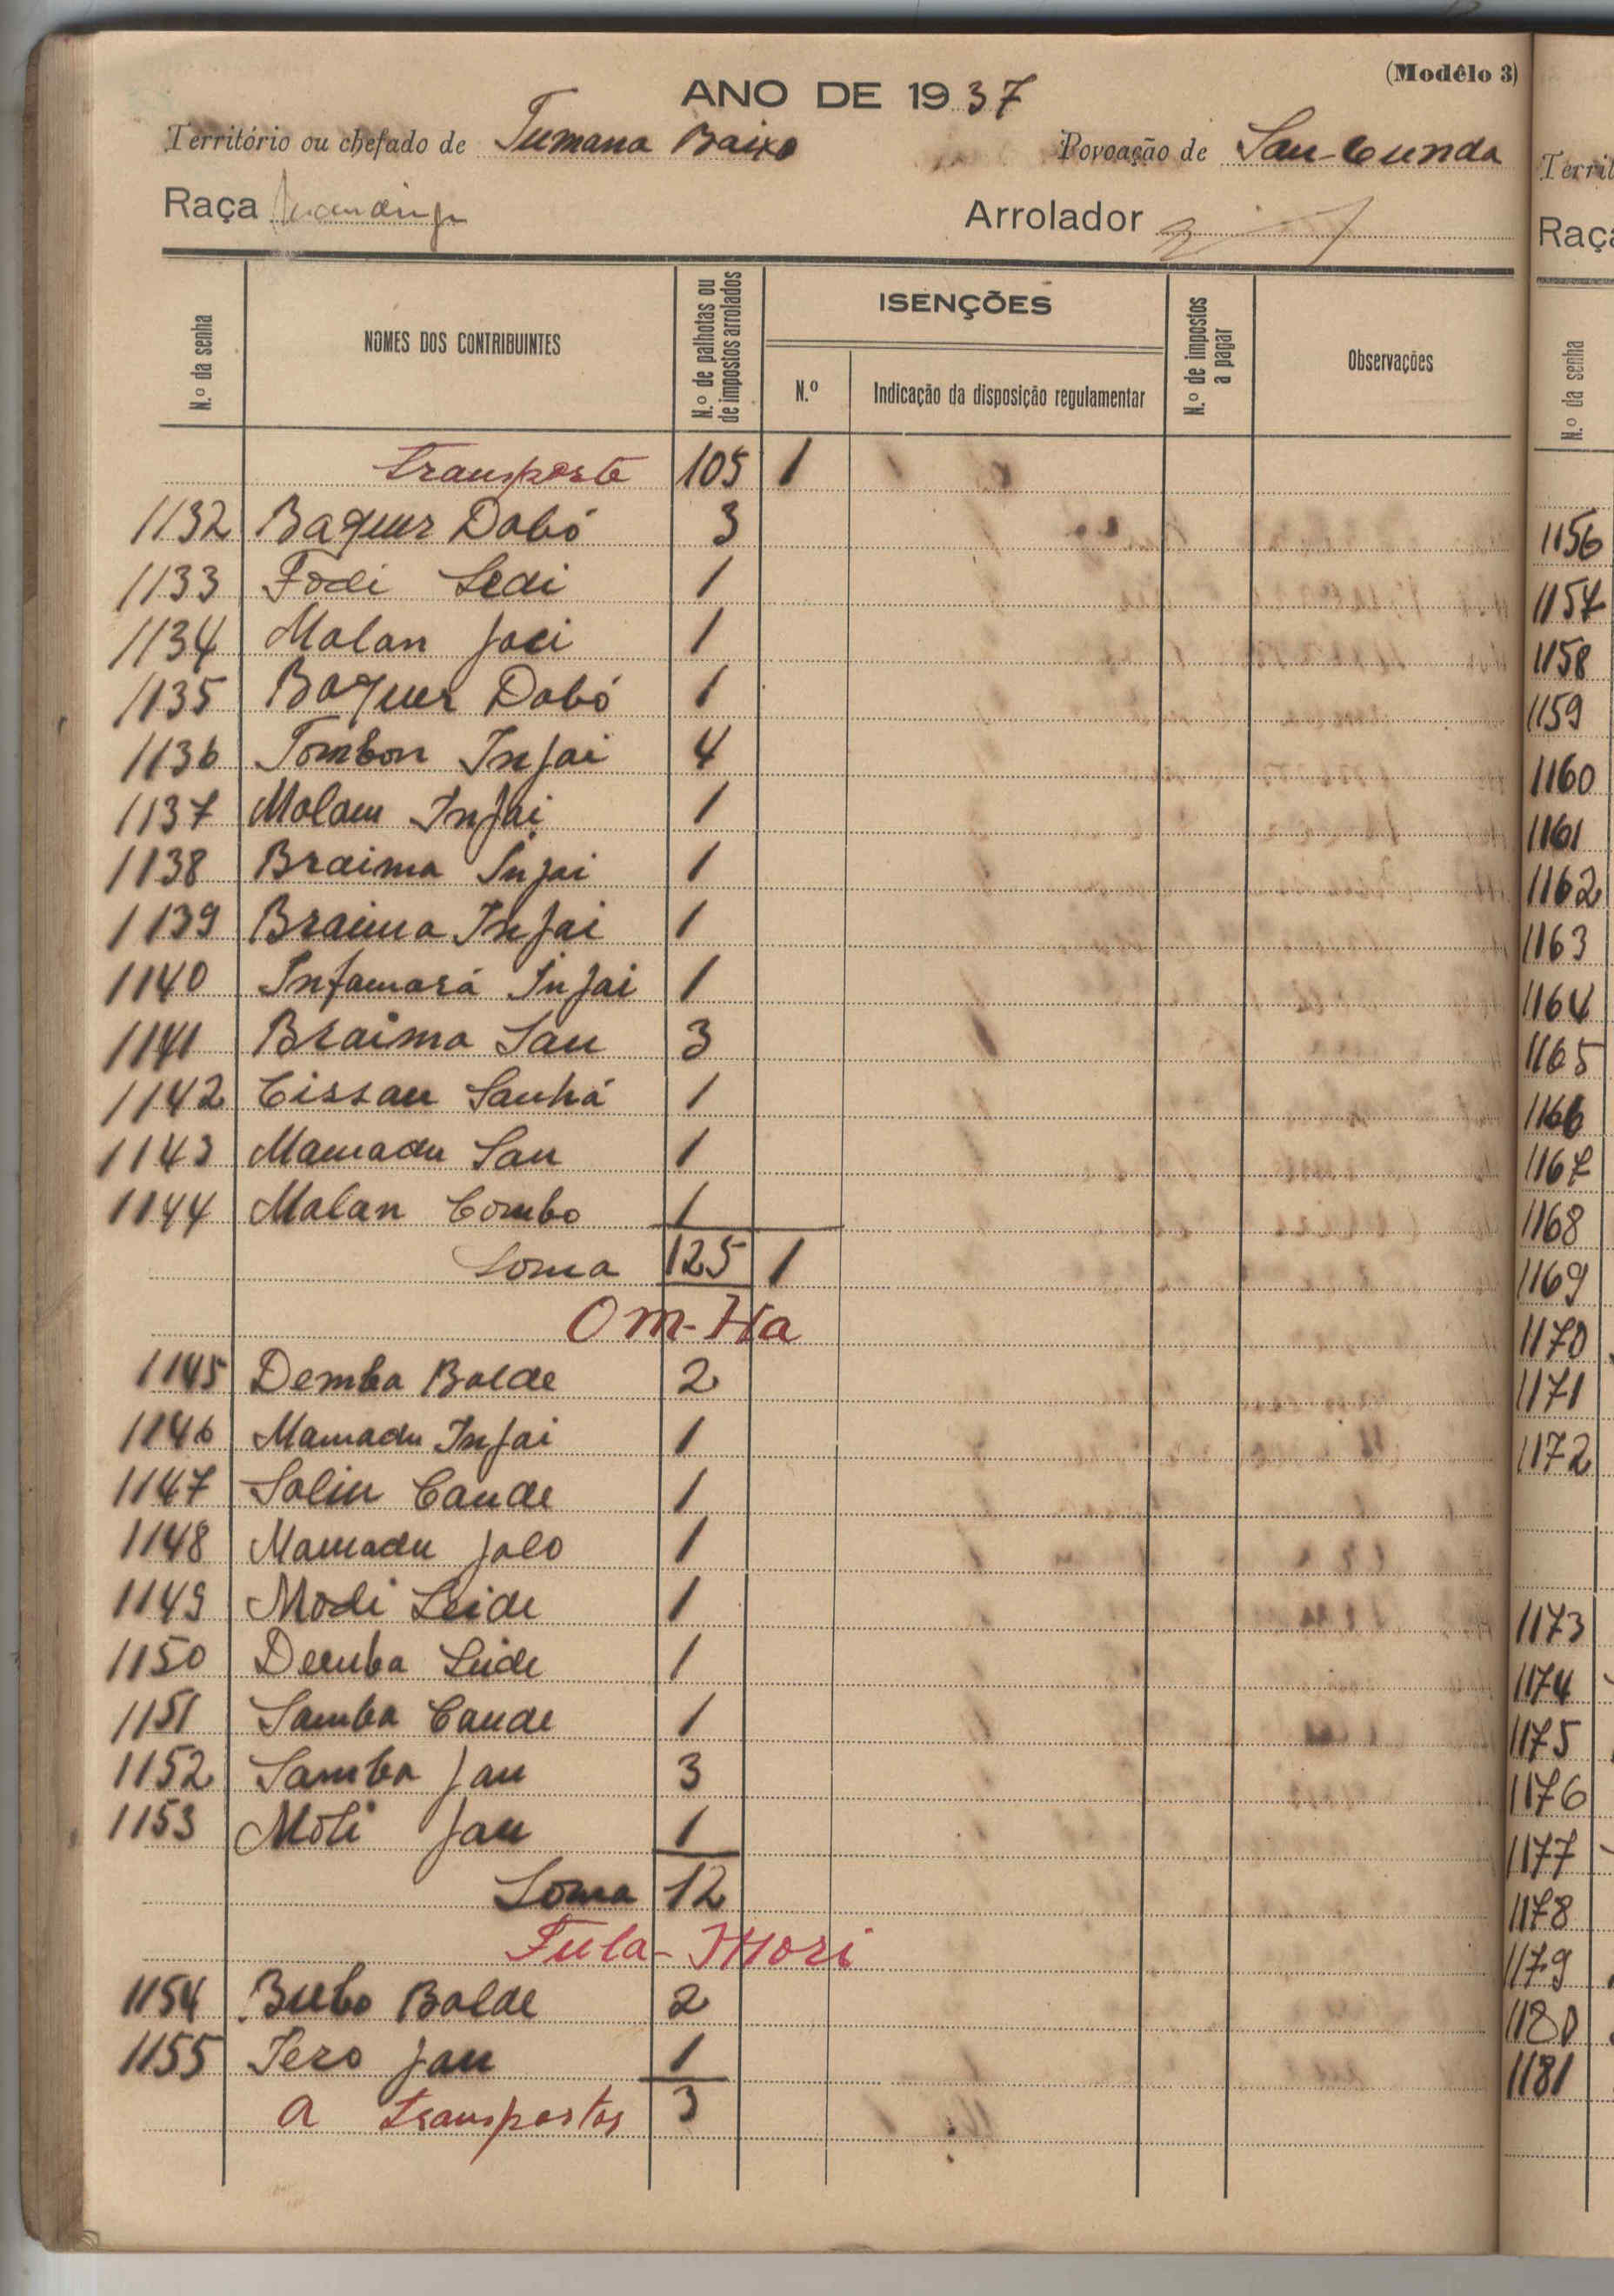 (Modêlo 3)
ANO DE 1937
Território ou chefado de Tumana Baixo Povoação de Sau-Cunda
Raça Mandinga Arrolador
N.º da senha
NOMES DOS CONTRIBUINTES
N.º de palhotas ou de impostos arrolados
ISENÇÕES
N.º
Indicação da disposição regulamentar
N.º de impostos a pagar
Observações
Transporte 105 1
1132 Baquer Dabó 3
1133 Fodi Sedi 1
1134 Malan Jaci 1
1135 Baquer Dabó 1
1136 Tombon Injai 4
1137 Malam Injai 1
1138 Braima Injai 1
1139 Braima Injai 1
1140 Infamará Injai 1
1141 Braima Sau 3
1142 Cissau Sanhá 1
1143 Mamadu Sau 1
1144 Malan Combo 1
Soma 125 1
Om-Ha
1145 Demba Balde 2
1146 Mamadu Injai 1
1147 Saliu Cande 1
1148 Mamadu Jalo 1
1149 Modi Seide 1
1150 Demba Seide 1
1151 Samba Cande 1
1152 Samba Jau 3
1153 Moli Jau 1
Soma 12
Fula-Mori
1154 Bubo Balde 2
1155 Tero Jau 1
A transportar 3
Territ
Raça
N.º da senha
1156
1157
1158
1159
1160
1161
1162
1163
1164
1165
1166
1167
1168
1169
1170
1171
1172
1173
1174
1175
1176
1177
1178
1179
1180
1181